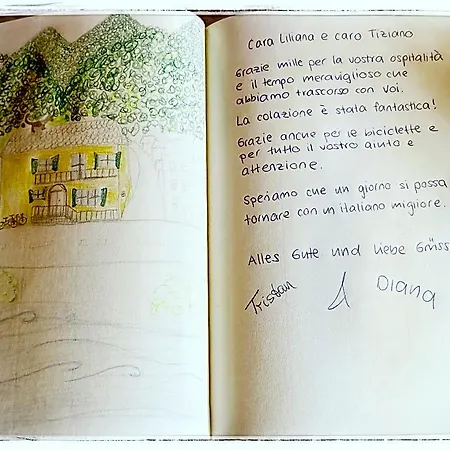 Cara Liliana e caro Tiziano
Grazie mille per la vostra ospitalità
e il tempo meraviglioso che
abbiamo trascorso con voi.
La colazione è stata fantastica!
Grazie anche per le biciclette e
per tutto il vostro aiuto e
attenzione.
Speriamo che un giorno si possa
tornare con un italiano migliore.
Alles Gute und liebe Grüss
Tristan Diana